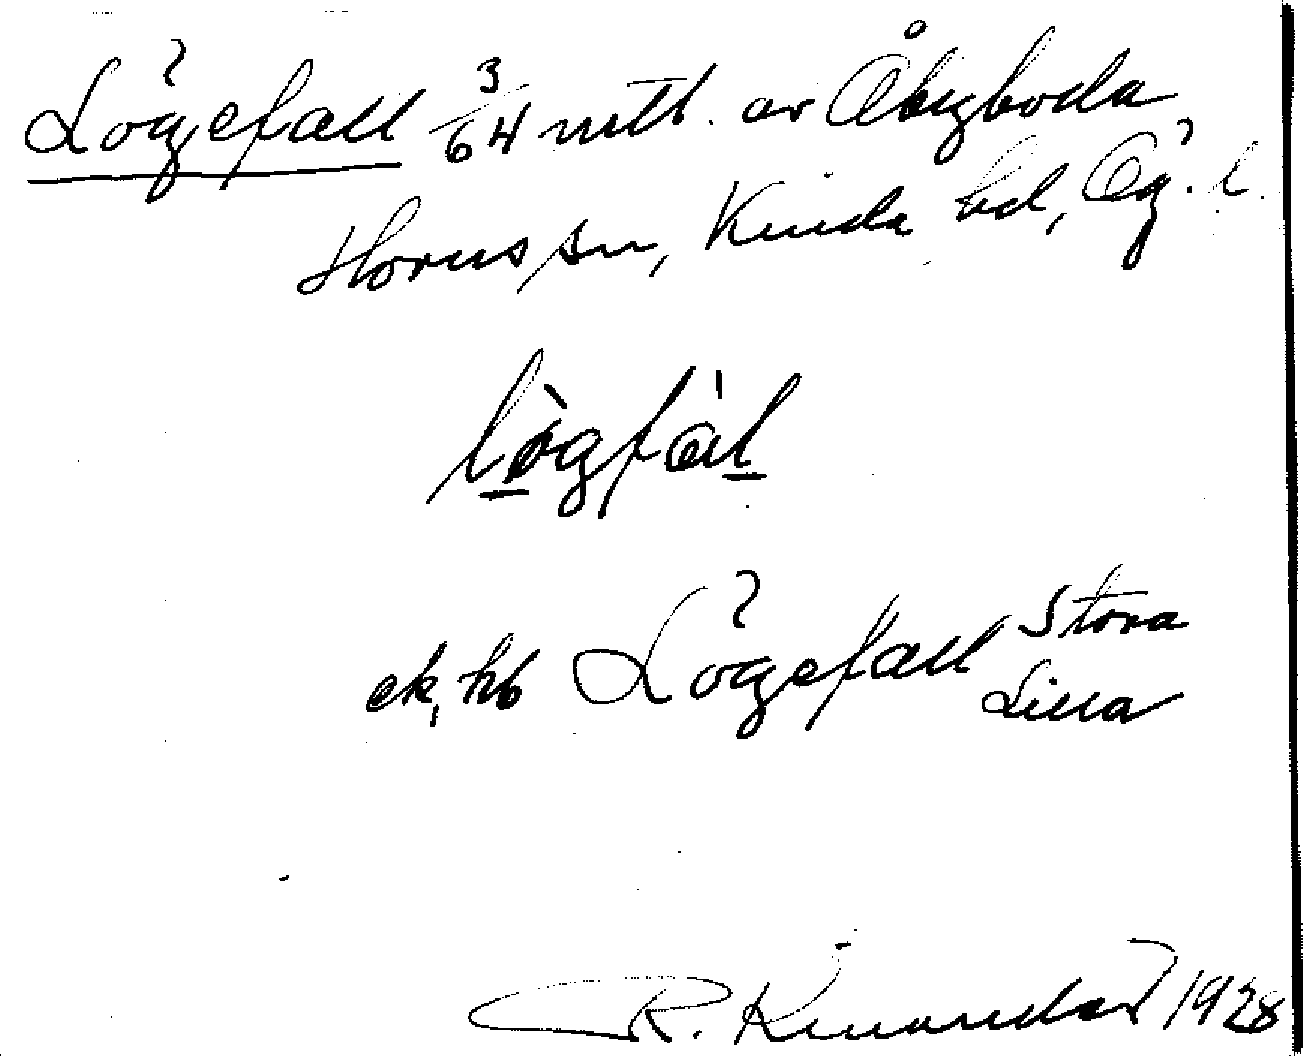 Lögefall 3/64 mtl. av Åbyboda
Horns sn, Kinda hd, Ög. l.
lògfàl
ek, hb Lögefall Stora
Lilla
R. Kinander 1928